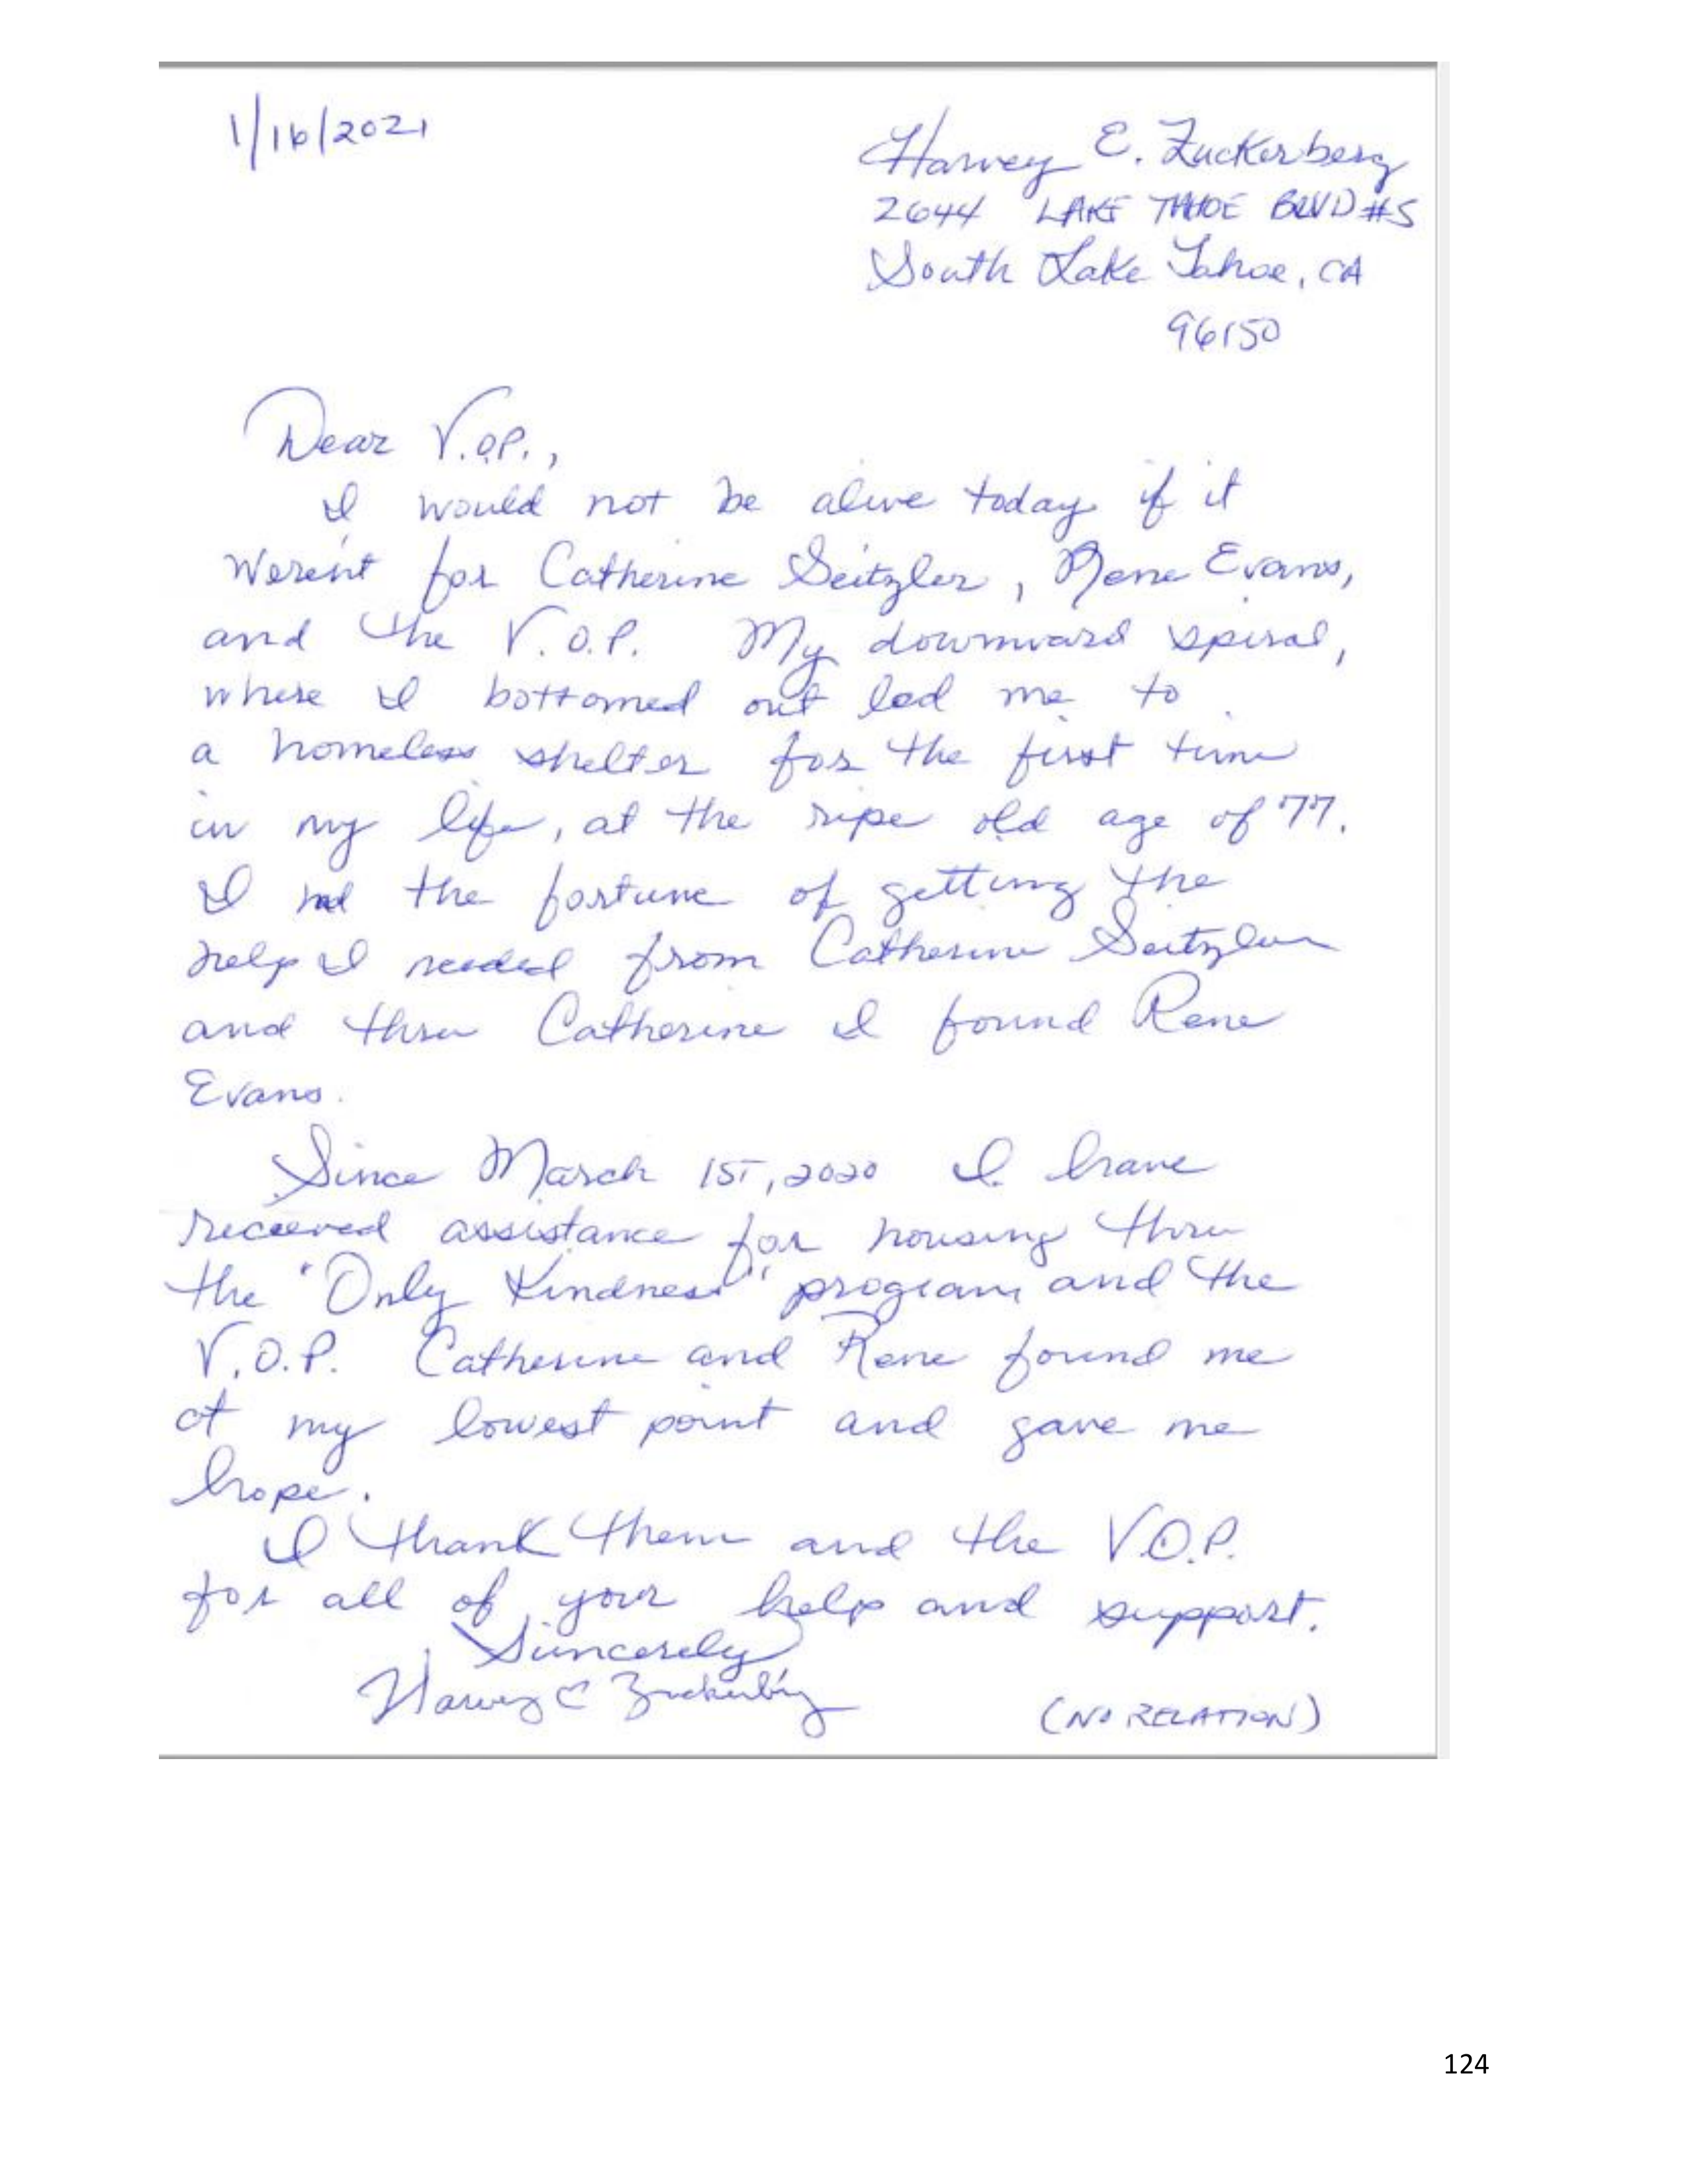 1/16/2021
Harvey E. Zuckerberg
2644 LAKE TAHOE BLVD #5
South Lake Tahoe, CA
96150
Dear V.O.P.,
I would not be alive today if it
weren't for Catherine Seitzler, Rene Evans,
and the V.O.P. My downward spiral,
where I bottomed out led me to
a homeless shelter for the first time
in my life, at the ripe old age of 77.
I had the fortune of getting the
help I needed from Catherine Seitzler
and thru Catherine I found Rene
Evans.
Since March 1ST, 2020 I have
received assistance for housing thru
the "Only Kindness" program and the
V.O.P. Catherine and Rene found me
at my lowest point and gave me
hope.
I thank them and the V.O.P.
for all of your help and support.
Sincerely
Harvey E Zuckerberg
(NO RELATION)
124